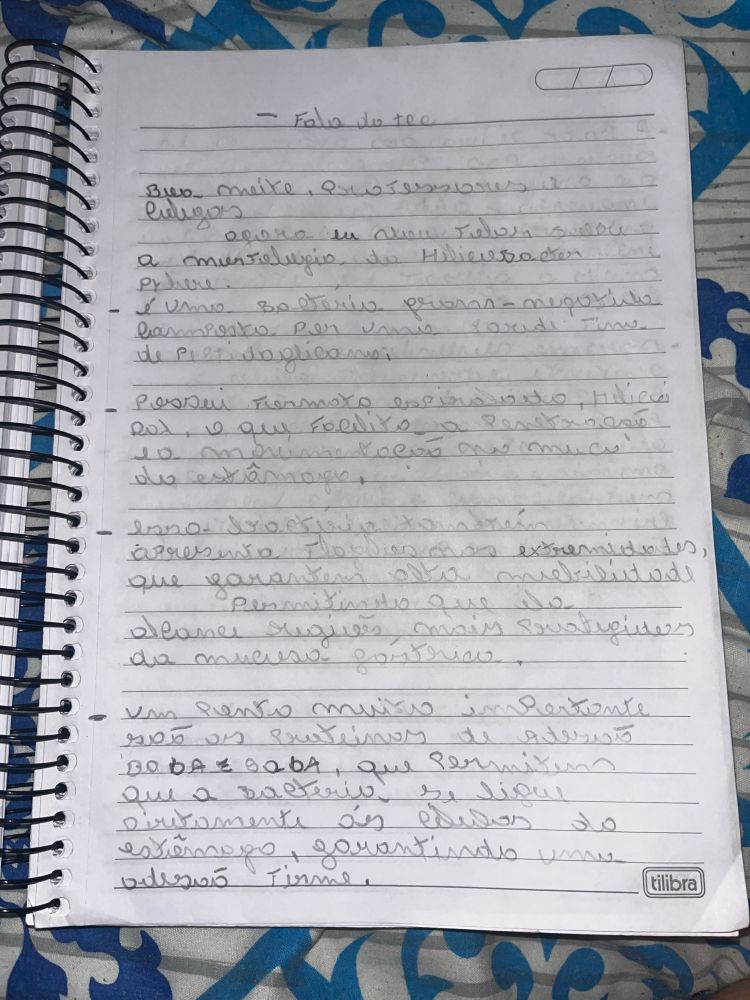 - Fala do tcc
Boa noite, Professores e
colegas
agora eu vou falar sobre
a morfologia da Helicobacter
Pylore.
- é uma bactéria gram-negativa
composta por uma parede fina
de peptidoglicano.
- Possui formato espiralado,
o que facilita a penetração
e a movimentação no muco
do estômago.
- essa bactéria também
apresenta flagelos nas extremidades,
que garantem alta mobilidade
Permitindo que ela
alcance regiões mais protegidas
da mucosa gástrica.
- um ponto muito importante
são as proteínas de adesão
BabA e SabA, que permitem
que a bactéria se ligue
diretamente ás células do
estômago, garantindo uma
adesão firme.
tilibra